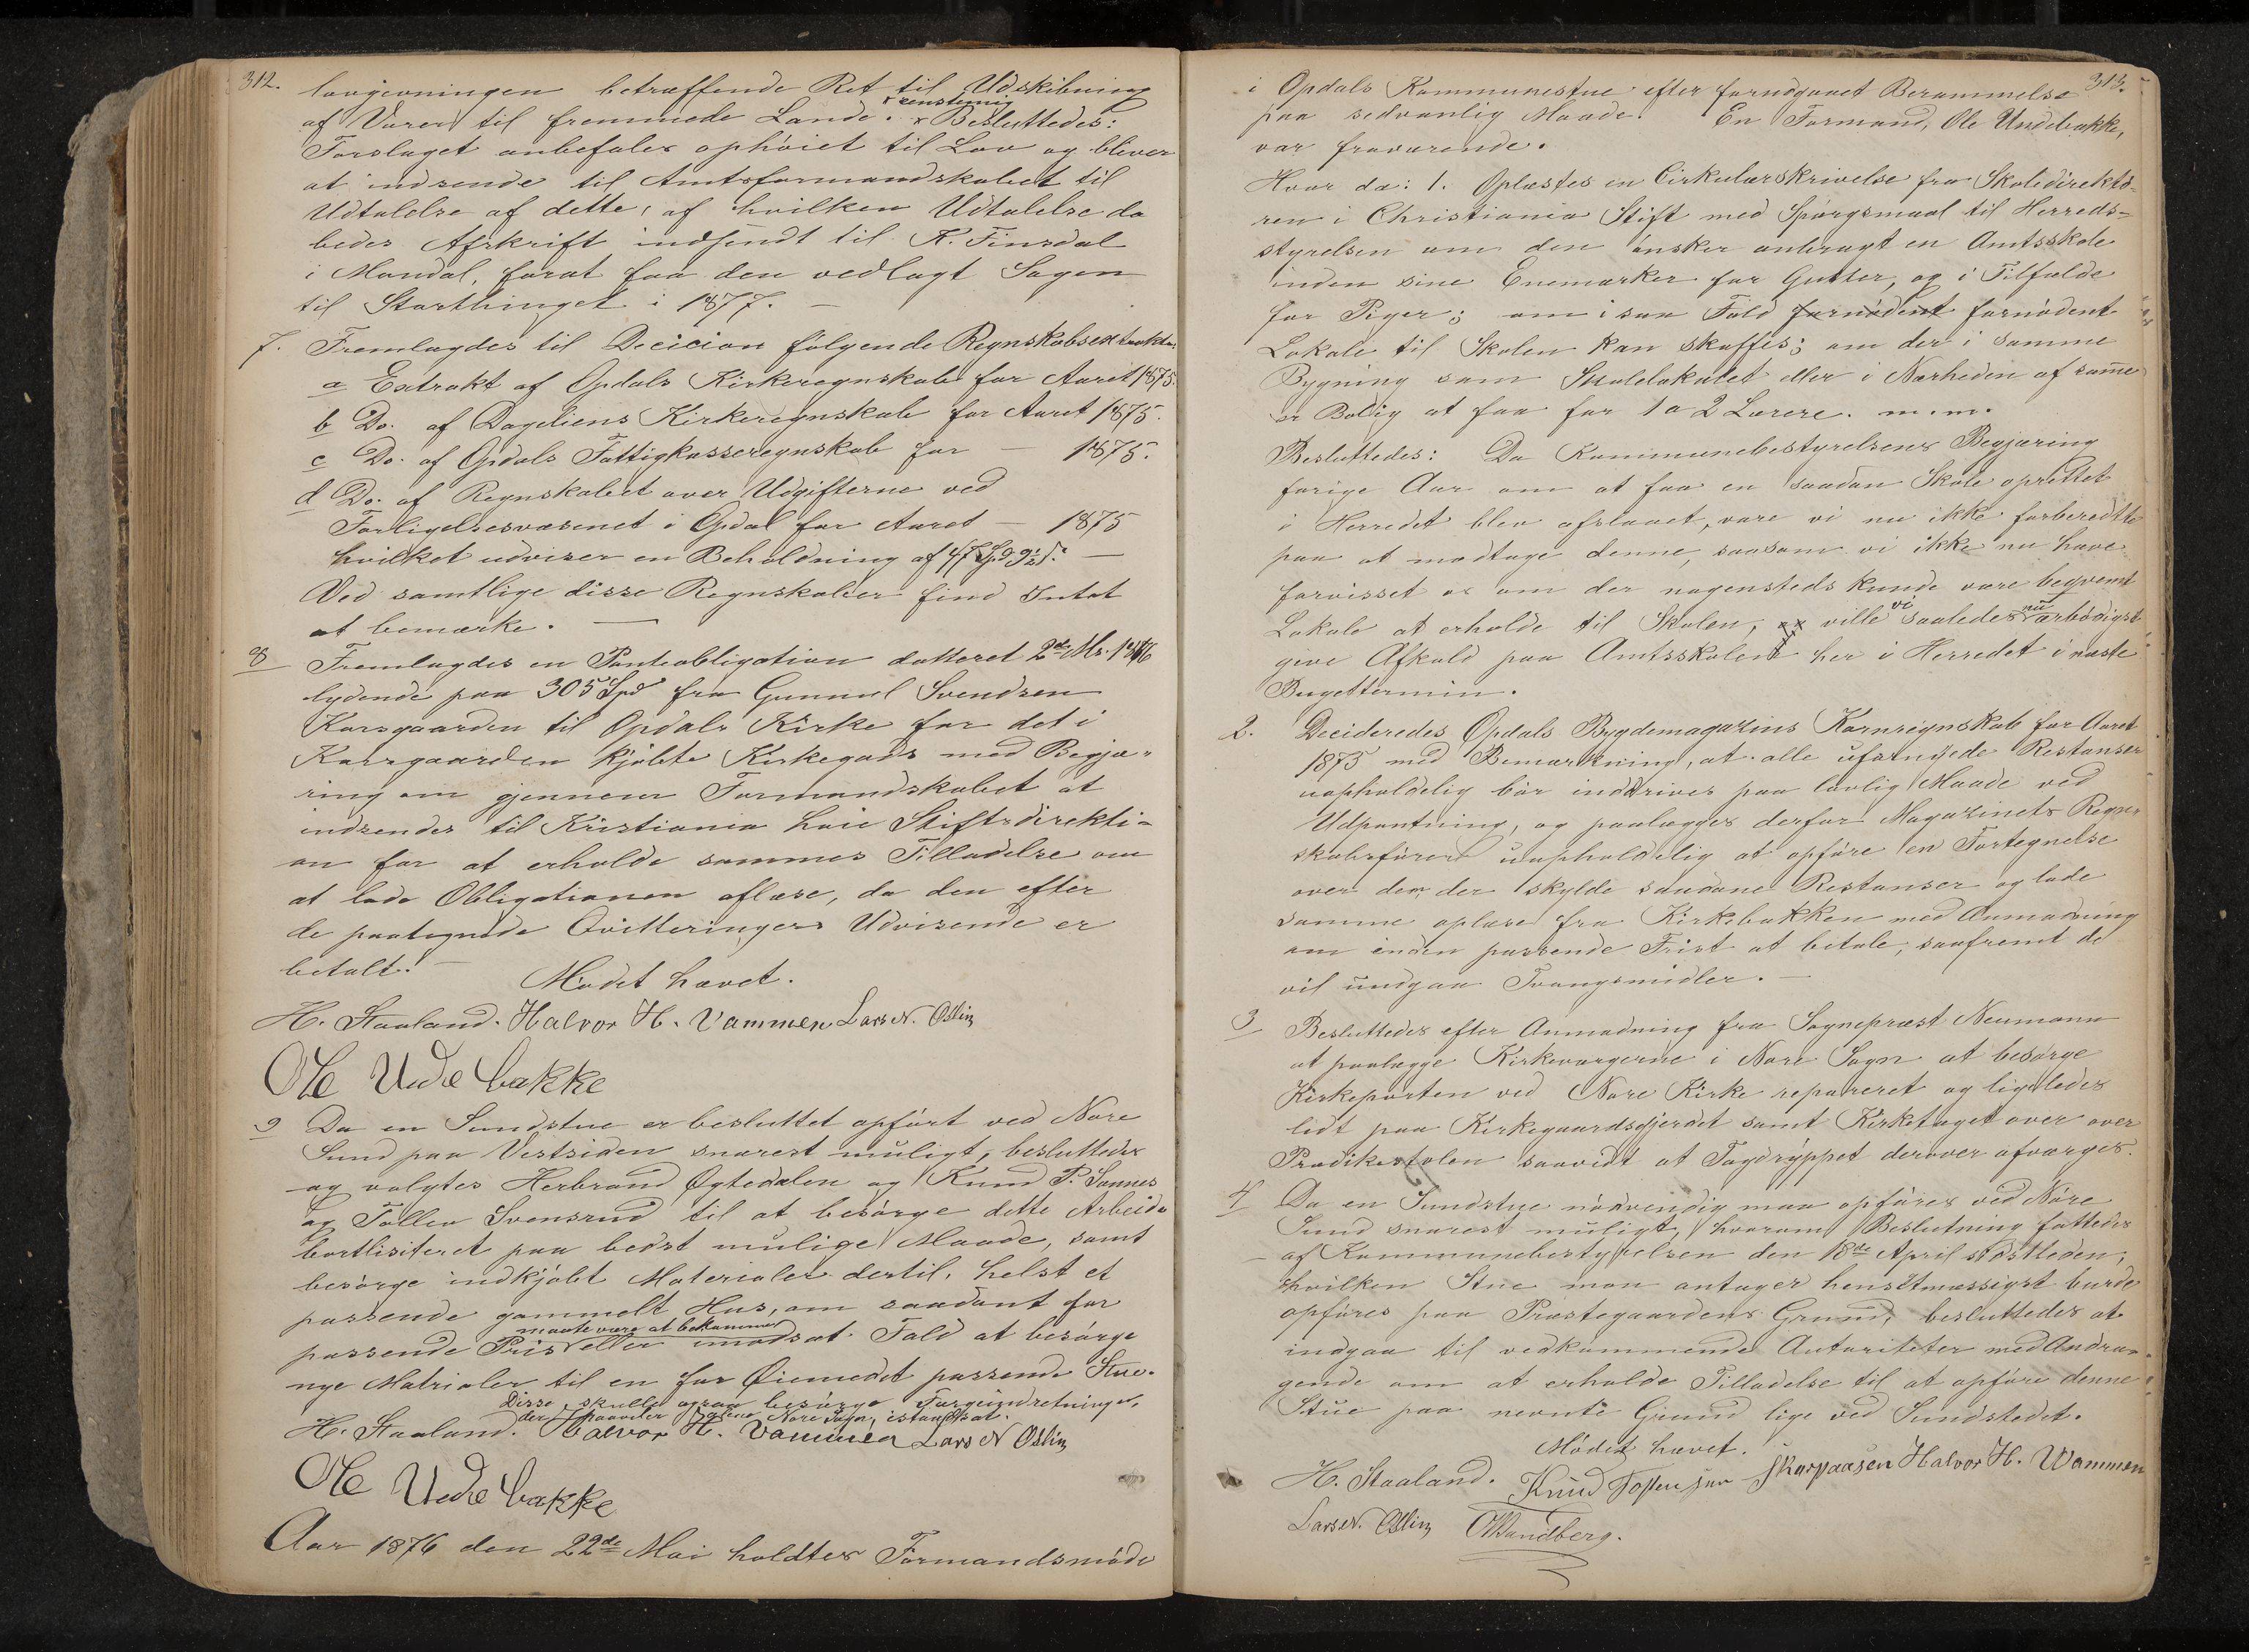 312.
lovgivningen betræffende Ret til Udskibning
af Varer til fremmede Lande. × Besluttedes: × eenstemmig
Forslaget anbefales ophöiet til Lov og bliver
at indsende til Amtsformandskabet til
Udtalelse af dette, af hvilken Udtalelse da
bedes Afskrift indsendt til K. Finsdal
i Mandal, forat faa den vedlagt Sagen
til Storthinget i 1877. —
7. Fremlagdes til Decicion fölgende Regnskabsextrakter
a Extrakt af Opdals Kirkeregnskab for Aaret 1875.
b Do. af Dageliens Kirkeregnskab for Aaret 1875.
c Do. af Opdals Fattigkasseregnskab for — 1875.
d Do. af Regnskabet over Udgifterne ved
Forligelsesvæsenet i Opdal for Aaret — 1875
hvilket udviser en Beholdning af
Ved samtlige disse Regnskaber find Intet
at bemærke. —
8 Fremlagdes en Panteobligation datteret 2de
lydende paa 305 Spd fra Gunnul Svendsen
Korsgaarden til Opdals Kirke for det i
Korsgaarden kjöbte Kirkegods med Begjæ-
ring om gjennem Formandskabet at
indsendes til Kristiania höie Stiftsdirekti-
on for at erholde sammes Tilladelse om
at lade Obligationen aflæse, da den efter
de paategnede Qvitteringers Udvisende er
betalt. —
Mödet hævet.
H. Staaland. Halvor H. Vammen Lars N. Oslin
Ole Undebakke
9 Da en Sundstue er besluttet opfört ved Nore
Sund paa Vestsiden snarest muligt, besluttedes
og valgtes Herbrand Øgtedalen og Knud P. Sønnes
og Tollev Svensrud til at besörge dette Arbeide
bortlisiteret paa bedst mulige Maade, samt
besörge indkjöbt Materialer dertil, helst et
passende gammelt Hus, om saadant for
maatte være at bekomme
passende Pris eller imodsat Fald at besörge
nye Matrialer til en for Øiemedet passende Stue.
Disse skulle ogsaa besörge Færgeindretninger,
der paaviler Nore Sogn, istandsat.
H. Staaland. Halvor H. Vammen Lars N Oslin
Ole Undebakke
Aar 1876 den 22de Mai holdtes Formandsmöde
313.
i Opdals Kommunestue efter forudgaaet Berammelse
paa sedvanlig Maade. En Formand, Ole Undebakke,
var fraværende.
Hvor da: 1. Oplæstes en Cirkulærskrivelse fra Skoledirektö-
ren i Christiania Stift med Spörgsmaal til Herreds-
styrelsen om den önsker anbragt en Amtsskole
inden sine Enemærker for Gutter, og i Tilfælde
for Piger; om i saa Fald fornödent fornödent
Lokale til Skolen kan skaffes; om der i samme
Bygning som Skolelokalet eller i Nærheden af samme
er Bolig at faa for 1 a 2 Lærere. m.m.
Besluttedes: Da Kommunebestyrelsens Begjæring
forige Aar om at faa en saadan Skole oprettet
i Herredet blev afslaaet, vare vi nu ikke forberedte
paa at modtage denne, saasom vi ikke nu have
forvisset os om der nogensteds kunde være beqvemt
Lokale at erholde til Skolen, ville vi saaledes nu ærbödigst
give Afkald paa Amtsskolen her i Herredet i næste
Bugettermin.
2. Decideredes Opdals Bygdemagazins Kornregnskab for Aaret
1875 med Bemærkning, at alle ufornyede Restanser
uopholdelig bör inddrives paa lovlig Maade ved
Udpantning, og paalægges derfor Magazinets Regn-
skabsförer uopholdelig at opföre en Fortegnelse
over dem, der skylde saadane Restanser og lade
samme oplæse fra Kirkebakken med Anmodning
om inden passende Frist at betale, saafremt de
vil undgaa Tvangsmidler. —
3 Besluttedes efter Anmodning fra Sognepræst Neumann
at paalægge Kirkeværgerne i Nore Sogn at besörge
Kirkeporten ved Nore Kirke repareret og ligeledes
lidt paa Kirkegaardsgjerdet samt Kirketaget over over
Prædikestolen saavidt at Tagdryppet derover afværges.
4 Da en Sundstue nödvendig maa opföres ved Nore
Sund snarest muligt, hvorom Beslutning fattedes
af Kommunebestyrelsen den 18de April sidstleden;
hvilken Stue man antager hensitmæssigst burde
opföres paa Præstegaardens Grund, besluttedes at
indgaa til vedkommende Autoriteter med Andra-
gende om at erholde Tilladelse til at opföre denne
Stue paa nevnte Grund lige ved Sundstedet.
Mödet hævet.
H. Staaland. Knud Skarpaasen Halvor H. Wammen
Lars N. Oslin O Sandberg.